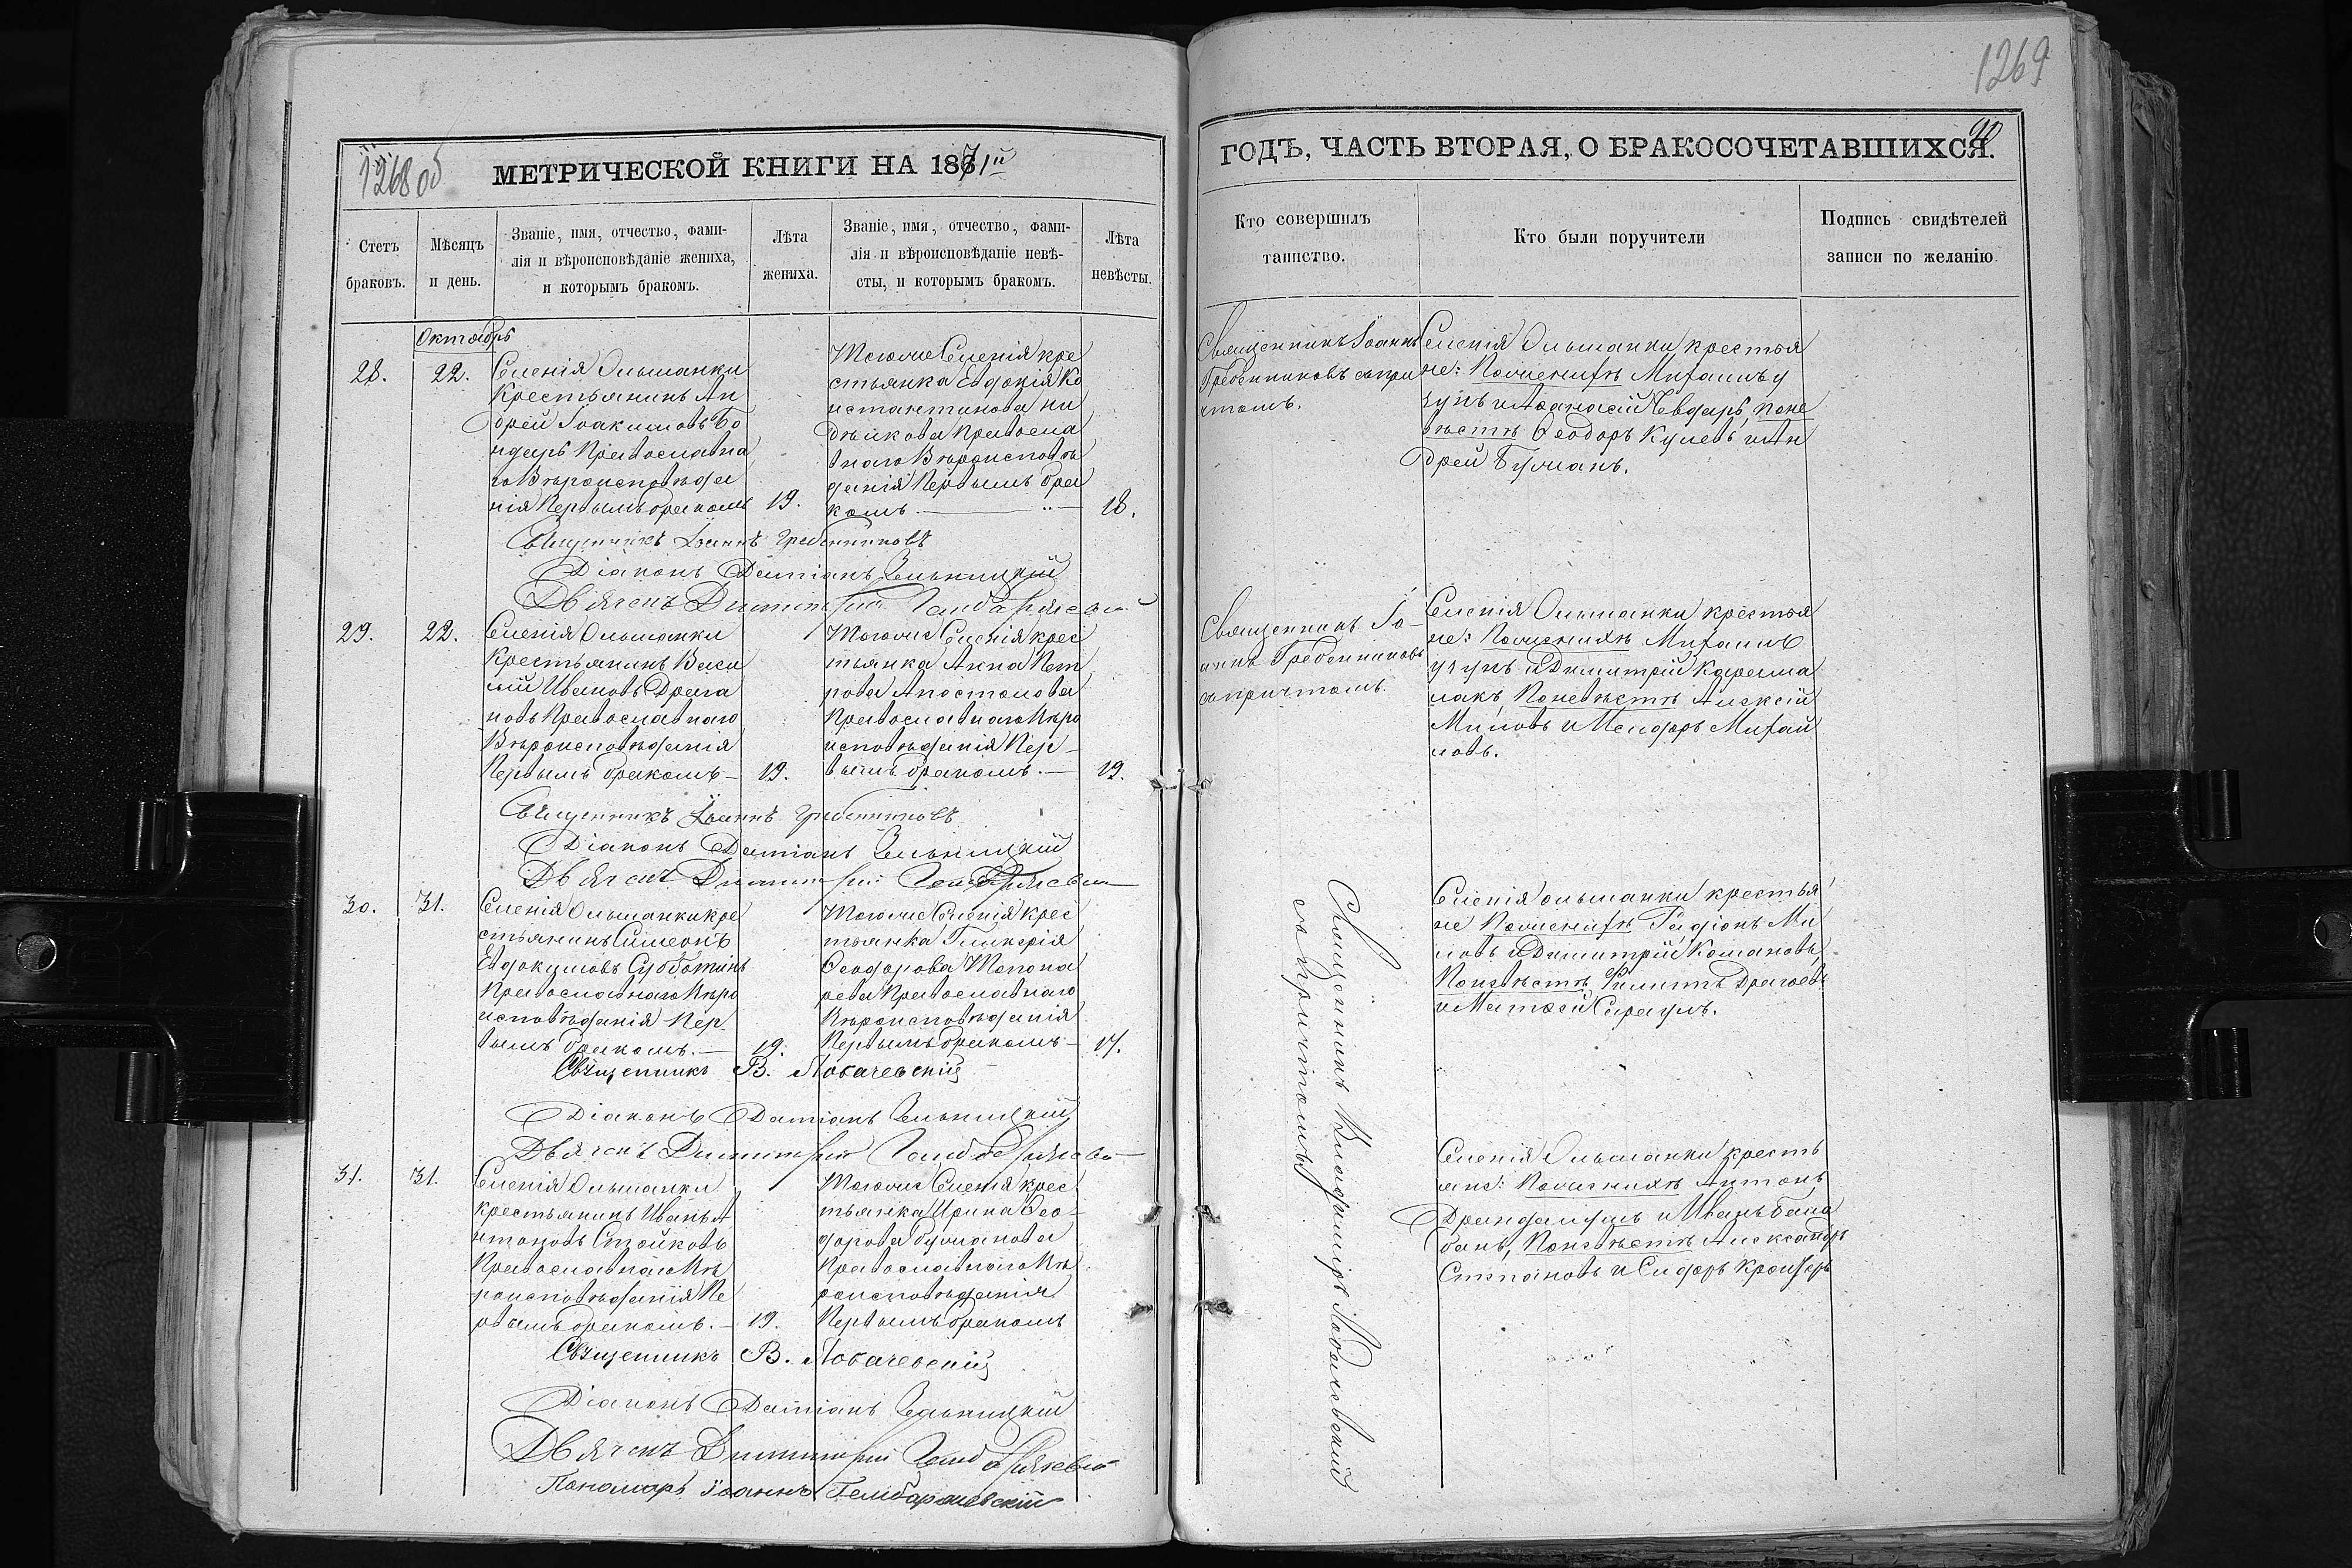 1268 об
МЕТРИЧЕСКОЙ КНИГИ НА 1871й
Счетъ браковъ.
Мѣсяцъ и день.
Званіе, имя, отчество, фами-
лія и вѣроисповѣданіе жениха,
и которымъ бракомъ.
Лѣта
жениха.
Званіе, имя, отчество, фами-
лія и вѣроисповѣданіе невѣ-
сты, и которымъ бракомъ.
Лѣта
невѣсты.
Октябрь
28.
22.
Селенія Ольшанки
Крестьянинъ Ан
дрей Іоакимовъ Бо
ндарь Православна
го Вѣроисповѣда
нія Первымъ бракомъ
19.
Тогоже Селенія кре
стьянка Евдокія Ко
нстантинова
Православ
наго Вѣроисповѣ
данія Первымъ бра
комъ.
18.
Священникъ Іоаннъ Гребенниковъ
Діаконъ Даміанъ
Дьячекъ Димитрій
29.
22.
Селенія Ольшанки
Крестьянинъ Васи
лій Ивановъ Драга
новъ Православнаго
Вѣроисповѣданія
Первымъ бракомъ
19.
Тогоже Селенія крес
тьянка Анна Пет
рова Апостолова
Православнаго Вѣро
исповѣданія Пер-
вымъ бракомъ.
19.
Священникъ Іоаннъ Гребенниковъ
Діаконъ Даміанъ
Дьячекъ Димитрій
30.
31.
Селенія Ольшанки кре
стьянинъ Симеонъ
Евдокимовъ Субботинъ
Православнаго Вѣро
исповѣданія Пер
вымъ бракомъ.
19.
Тогоже Селенія крес
тьянка Гликерія
Ѳеодорова Топора
рева Православнаго
Вѣроисповѣданія
Первымъ бракомъ
17.
Священникъ В. Лобачевскій
Діаконъ Даміанъ
Дьячекъ Димитрій
31.
31.
Селенія Ольшанки
крестьянинъ Иванъ А
нтоновъ Стойковъ
Православнаго Вѣ
роисповѣданія Пе
рвымъ бракомъ.
19.
Тогоже Селенія крес
тьянка Ирина Ѳео-
дорова Гуманова
Православнаго Вѣ
роисповѣданія
Первымъ бракомъ
Священникъ В. Лобачевскій
Діаконъ Даміанъ
Дьячекъ Димитрій
Пономарь Іоаннъ
1269
90
ГОДЪ, ЧАСТЬ ВТОРАЯ, О БРАКОСОЧЕТАВШИХСЯ.
Кто совершилъ
таинство.
Кто были поручители
Подпись свидѣтелей
записи по желанію.
Священникъ Іоаннъ
Гребенниковъ съ при
чтомъ.
Селенія Ольшанки крестья
не: По женихѣ Михаилъ У
зунъ и Аѳанасій Чевдарь, по не
вѣстѣ Ѳеодоръ Кулевъ и Ан
дрей Гуманъ.
Священникъ Іо-
аннъ Гребенниковъ
съ причтомъ.
Селенія Ольшанки крестья
не: По женихѣ Михаилъ
Узунъ и Димитрій Карама
лакъ, По невѣстѣ Алексій
Миловъ и Михай
ловъ.
Священникъ Владимиръ Лобачевскій
съ причтомъ
Селенія Ольшанки крестья
не По женихѣ Родіонъ Ми
ловъ и Димитрій Комановъ,
По невѣстѣ Филиппъ Драгоевъ
и Матѳей
Селенія Ольшанки кресть
яне: По женихѣ Антонъ
и Иванъ Бала
банъ, По невѣстѣ Александръ
Степановъ и Сидоръ